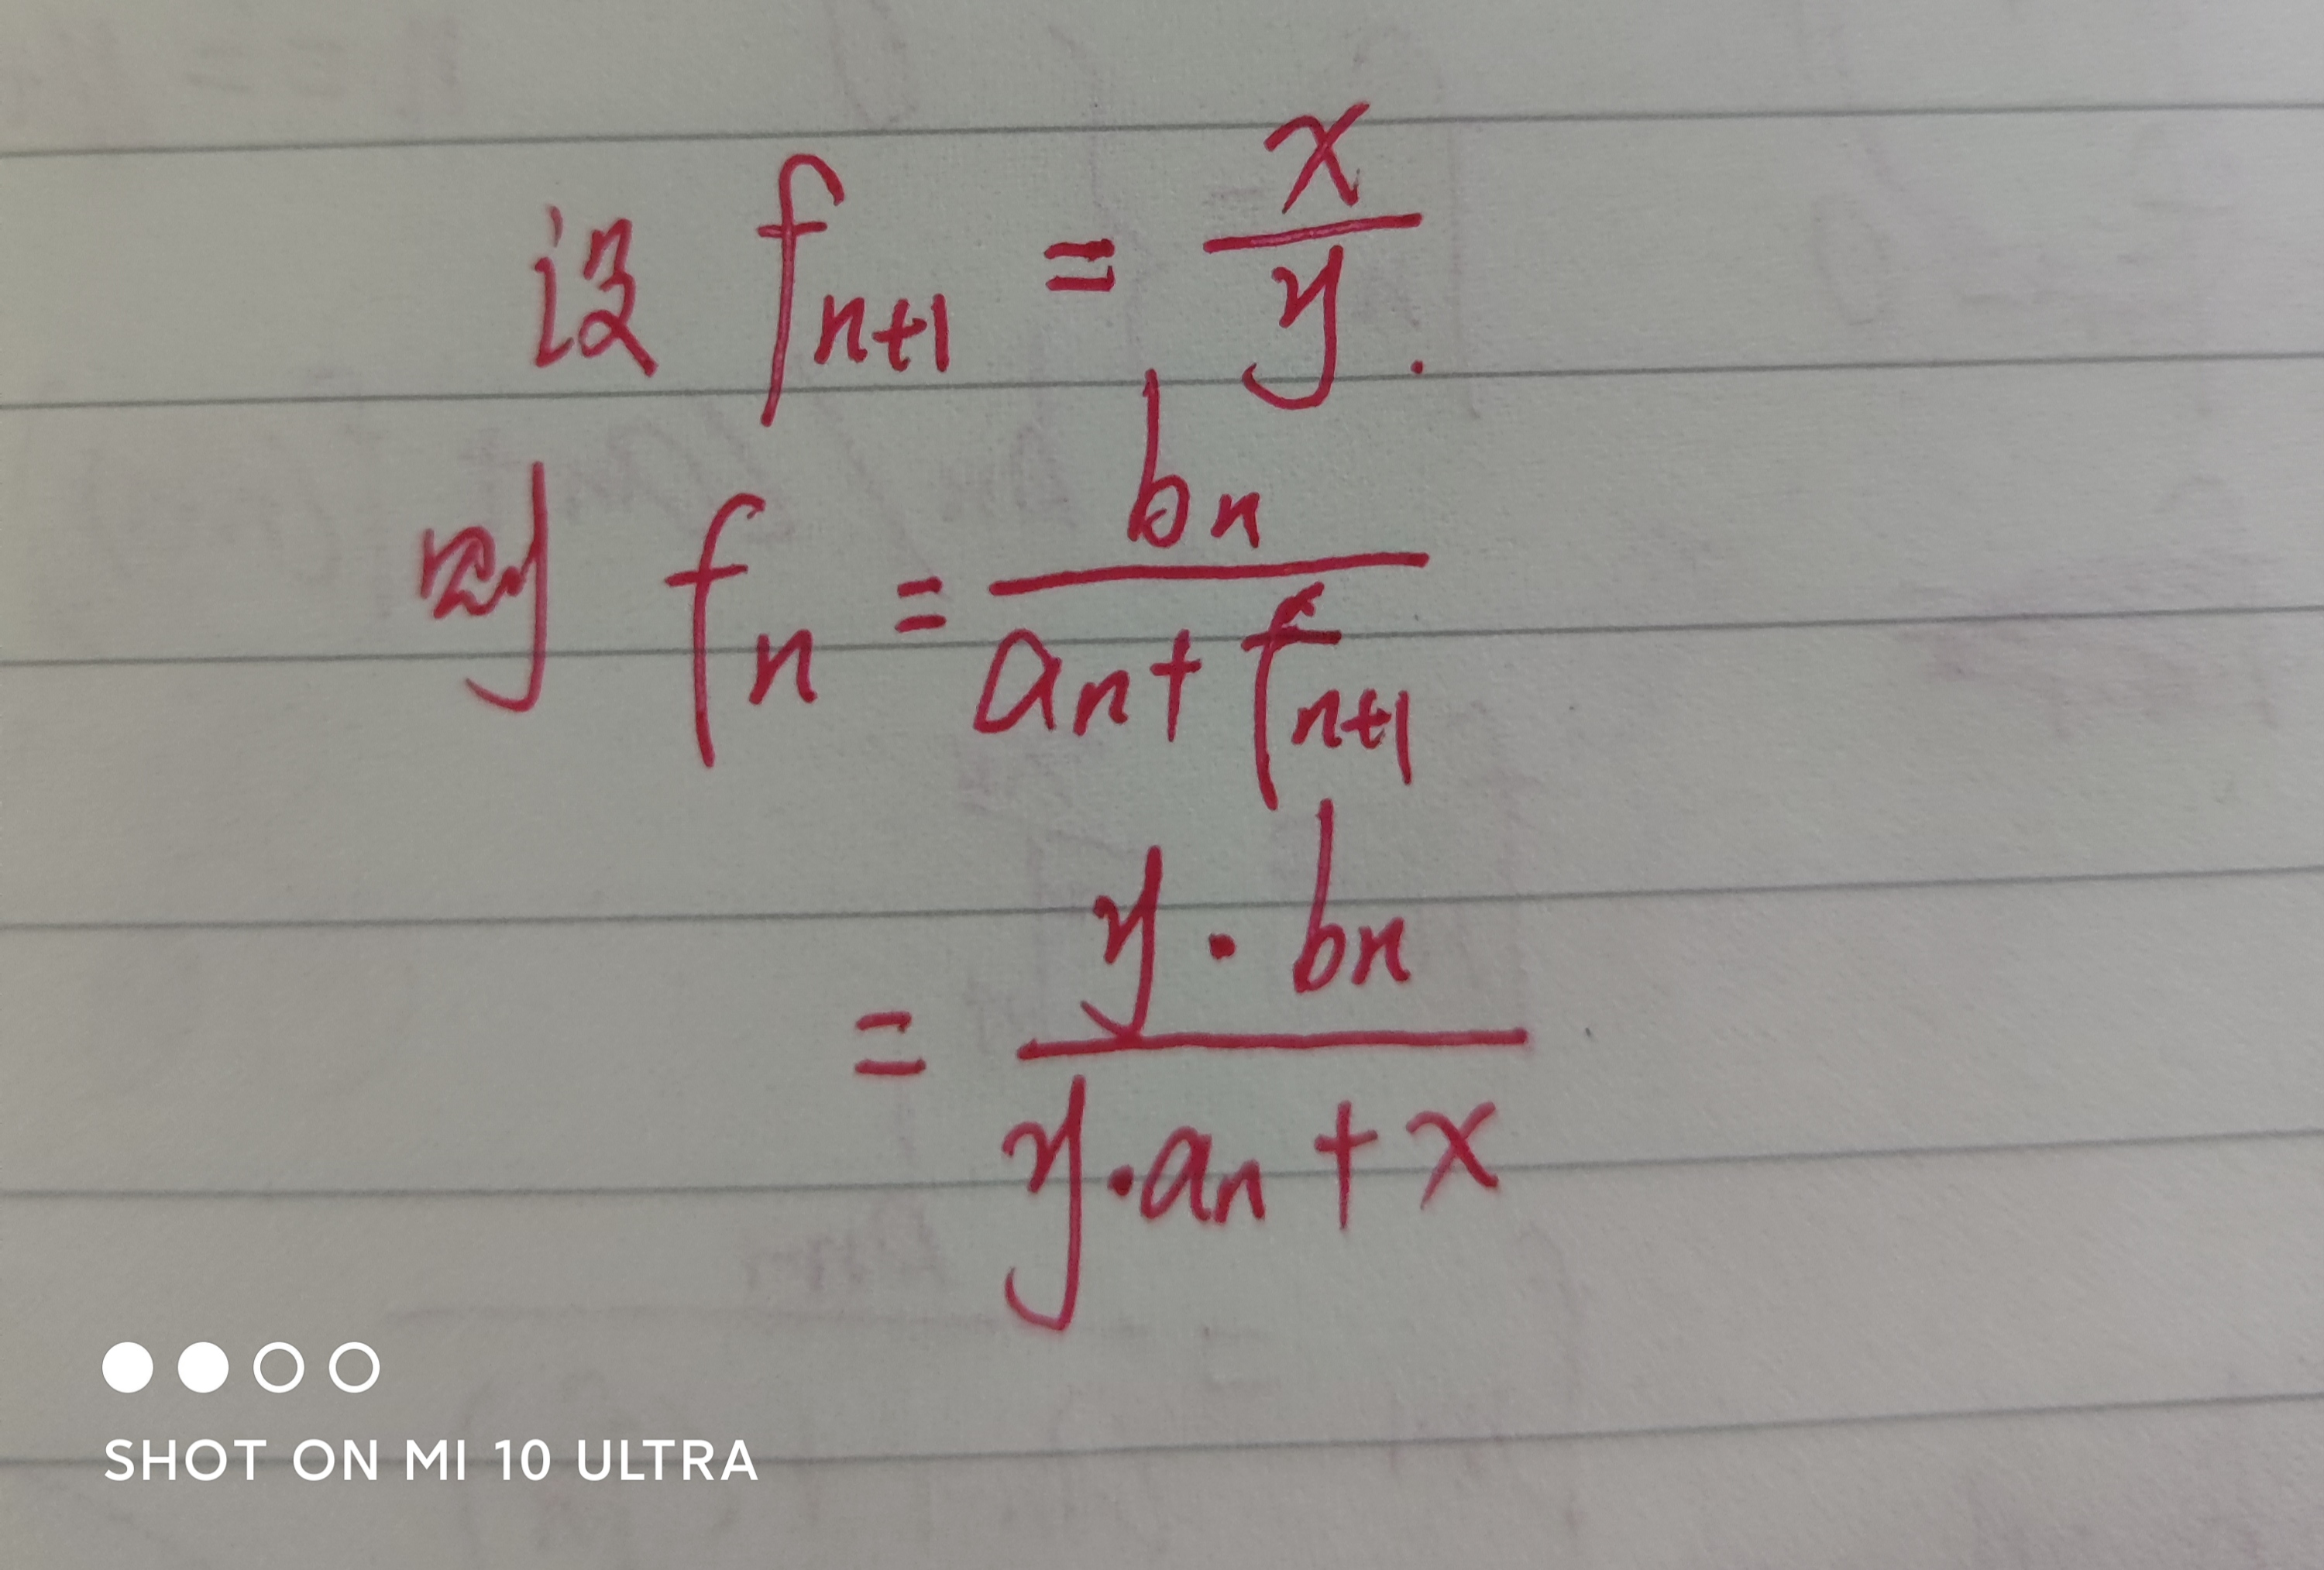 设 f_{n+1} = \frac{x}{y}.
则 f_n = \frac{b_n}{a_n + f_{n+1}}
= \frac{y \cdot b_n}{y \cdot a_n + x}
SHOT ON MI 10 ULTRA